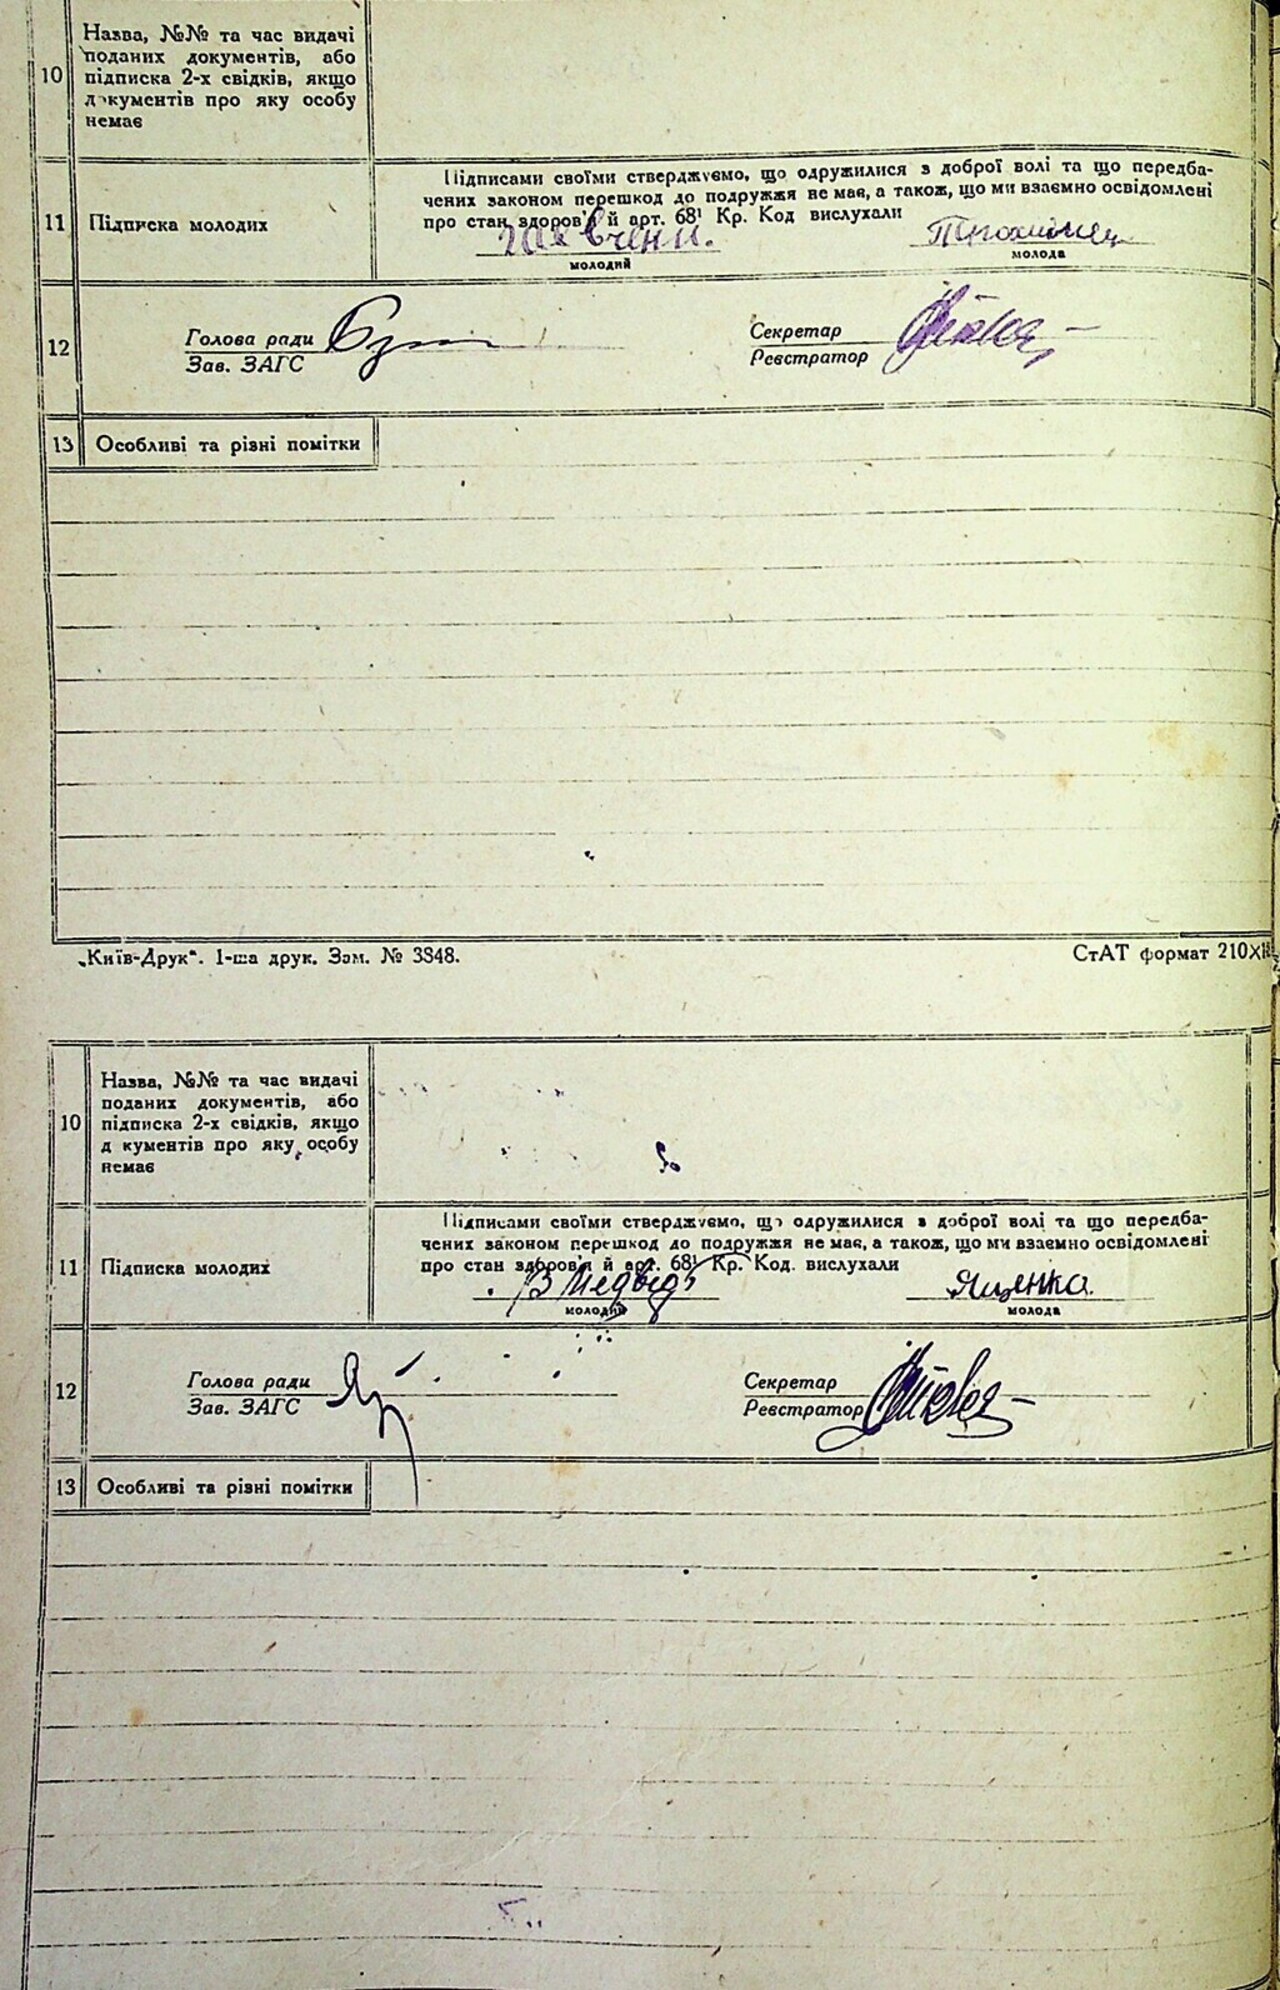 10
Назва, №№ та час видачі
поданих документів, або
підписка 2-х свідків, якщо
д кументів про яку особу
немає
11
Підписка молодих
Підписами своїми стверджуємо, що одружилися з доброї волі та що передба-
чених законом перешкод до подружжя не має, а також, що ми взаємно освідомлені
про стан здоров'я й арт. 68¹ Кр. Код вислухали
молодий
молода
12
Голова ради
Зав. ЗАГС
Секретар
Реєстратор
13
Особливі та різні помітки
„Київ-Друк“. 1-ша друк. Зам. № 3848.
СтАТ формат 210X
10
Назва, №№ та час видачі
поданих документів, або
підписка 2-х свідків, якщо
д кументів про яку особу
немає
11
Підписка молодих
Підписами своїми стверджуємо, що одружилися з доброї волі та що передба-
чених законом перешкод до подружжя не має, а також, що ми взаємно освідомлені
про стан здоров'я й арт. 68¹ Кр. Код. вислухали
В Медвідь
Яценка
молодий
молода
12
Голова ради
Зав. ЗАГС
Секретар
Реєстратор
13
Особливі та різні помітки